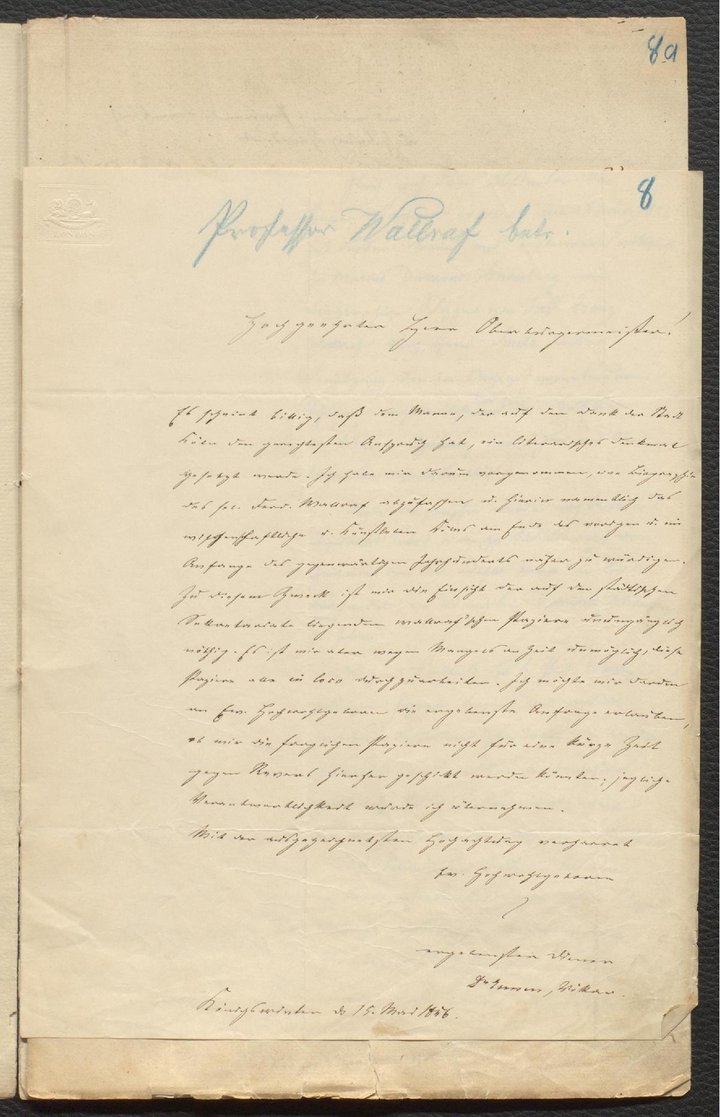 8a
8
Professor Wallraf betr.
Hochgeehrter Herr Oberbürgermeister!
Es scheint billig, daß dem Manne, der auf den Dank der Stadt
Köln den gerechtesten Anspruch hat, ein literarisches Denkmal
gesetzt werde. Ich habe mir darum vorgenommen, eine Biographie
des sel. Ferd. Wallraf abzufassen u. hierin namentlich das
wissenschaftliche u. Kunstleben Kölns am Ende des vorigen u. im
Anfange des gegenwärtigen Jahrhunderts näher zu würdigen.
Zu diesem Zweck ist mir die Einsicht der auf dem städtischen
Sekretariate liegenden Wallraf'schen Papiere unumgänglich
nöthig. Es ist mir aber wegen Mangels an Zeit unmöglich, diese
Papiere alle in loco durchzuarbeiten. Ich möchte mir darum
an Ew. Hochwohlgeboren die ergebenste Anfrage erlauben,
ob mir die fraglichen Papiere nicht für eine kurze Zeit
gegen Revers hierher geschickt werden könnten; jegliche
Verantwortlichkeit würde ich übernehmen.
Mit der ausgezeichnetsten Hochachtung verharret
Ew. Hochwohlgeboren
ergebenster Diener
Dr Ennen, Vikar.
Königswinter d 15. Mai 1856.